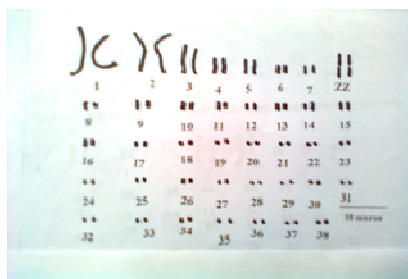 1 2 3 4 5 6 7 ZZ
8 9 10 11 12 13 14 15
16 17 18 19 20 21 22 23
24 25 26 27 28 29 30 31
10 micron
32 33 34 35 36 37 38